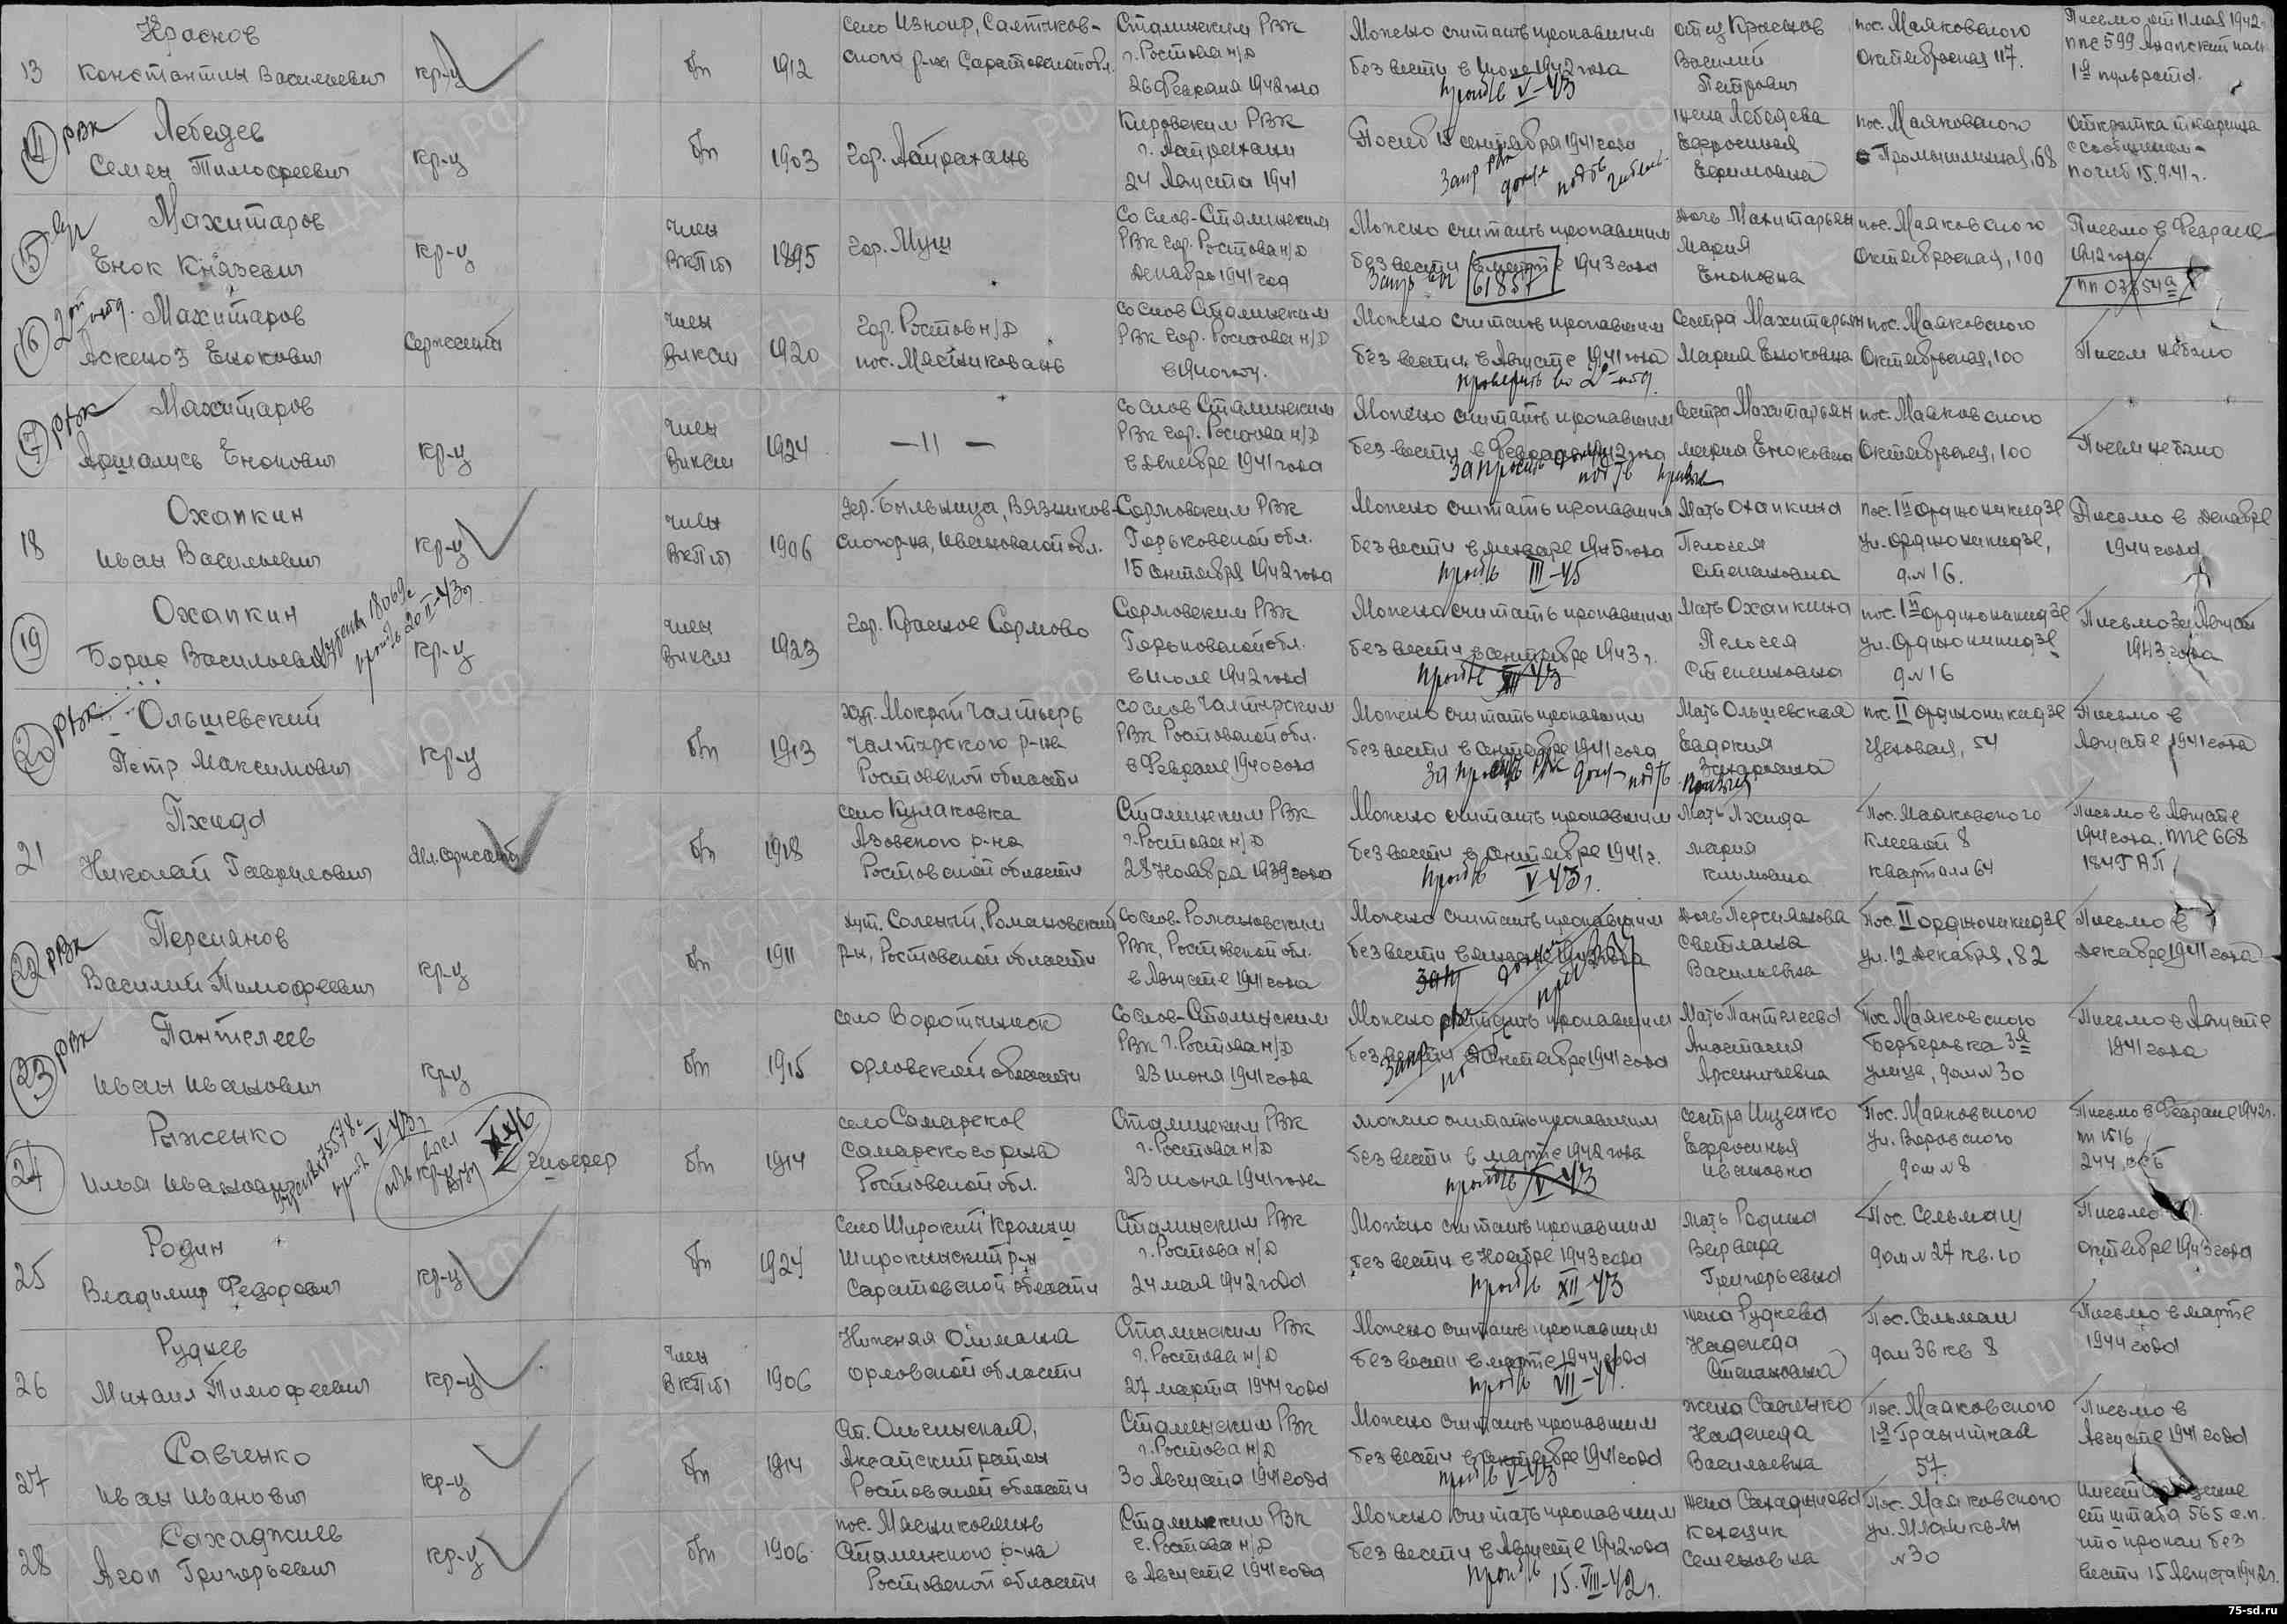 13
Краснов
Константин Васильевич
кр-ц
б/п
1912
село Изнаир, Салтыков-
ского р-на Саратовской обл.
Сталинским РВК
г. Ростова н/Д
26 Февраля 1942 года
Можно считать пропавшим
без вести в июне 1942 года
проп б/в V-43
отец Краснов
Василий
Петрович
пос. Маяковского
Октябрьская 117.
Письмо от 11 мая 1942 г.
ппс 599
14 РВК
Лебедев
Семен Тимофеевич
кр-ц
б/п
1903
гор. Астрахань
Кировским РВК
г. Астрахани
24 Августа 1941
Погиб 15 сентября 1941 года
жена Лебедева
Ефросинья
Ефимовна
пос. Маяковского
Промышленная, 68
Открытка товарища
с сообщением
погиб 15.9.41 г.
15
Махитаров
Енок Князевич
кр-ц
член
ВКП(б)
1895
гор. Муш
Со слов-Сталинским
РВК гор. Ростова н/Д
Декабрь 1941 год
Можно считать пропавшим
без вести в марте 1943 года
61857
дочь Махитарьян
Мария
Еноковна
пос. Маяковского
Октябрьская, 100
Письмо в Феврале
1942 года.
16
Махитаров
Аскеноз Енокович
Сержант
член
ВЛКСМ
1920
гор. Ростов н/Д
пос. Мясниковань
Со слов Сталинским
РВК гор. Ростова н/Д
в 1940 году.
Можно считать пропавшим
без вести в Августе 1941 года
проверить по 2й отд.
Сестра Махитарьян
Мария Еноковна
пос. Маяковского
Октябрьская, 100
Писем небыло
17 РВК
Махитаров
Аршалусь Енокович
кр-ц
член
ВЛКСМ
1924
— 11 —
Со слов Сталинским
РВК гор. Ростова н/Д
в Декабре 1941 года
Можно считать пропавшим
без вести в Феврале 1942 года
Сестра Махитарьян
Мария Еноковна
пос. Маяковского
Октябрьская, 100
Писем небыло
18
Охапкин
Иван Васильевич
кр-ц
член
ВКП(б)
1906
Вязников-
ского р-на, Ивановской обл.
Сормовским РВК
Горьковской обл.
15 сентября 1942 года
Можно считать пропавшим
без вести в январе 1945 года
проп б/в III-45
Мать Охапкина
Пелогея
Степановна
пос. Iй Орджоникидзе
ул. Орджоникидзе,
д. № 16.
Письмо в декабре
1944 года
19
Охапкин
Борис Васильевич
кр-ц
член
ВЛКСМ
1923
гор. Красное Сормово
Сормовским РВК
Горьковской обл.
в Июле 1942 года
Можно считать пропавшим
без вести в сентябре 1943 г.
Мать Охапкина
Пелогея
Степановна
пос. Iй Орджоникидзе
ул. Орджоникидзе
д № 16
Письмо за Август
1943 года
20 РВК
Ольшевский
Петр Максимович
кр-ц
б/п
1913
хут. Мокрый Чалтырь
Чалтырского р-на
Ростовской области
Со слов Чалтырским
РВК Ростовской обл.
в Феврале 1940 года
Можно считать пропавшим
без вести в сентябре 1941 года
Мать Ольшевская
Евдокия
Захаровна
пос. II Орджоникидзе
Цеховая, 54
Письмо в
Августе 1941 года
21
Пхида
Николай Гаврилович
Мл. сержант
б/п
1918
село Кулаковка
Азовского р-на
Ростовской области
Сталинским РВК
г. Ростова н/Д
28 Ноября 1939 года
Можно считать пропавшим
без вести в сентябре 1941 г.
проп б/в V-43 г.
Мать Пхида
Мария
Климовна
Пос. Маяковского
Клеевой 8
квартал 64
Письмо в Августе
1941 года. ппс 668
184 ГАП
22 РВК
Персиянов
Василий Тимофеевич
кр-ц
б/п
1911
хут. Соленый, Романовский
р-н, Ростовской области
Со слов. Романовским
РВК, Ростовской обл.
в Августе 1941 года
Можно считать пропавшим
дочь Персиянова
Светлана
Васильевна
Пос. II Орджоникидзе
ул. 12 декабря, 82
Письмо в
декабре 1941 года
23 РВК
Пантелеев
Иван Иванович
кр-ц
б/п
1915
село Воротынск
Орловской области
Со слов-Сталинским
РВК г. Ростова н/Д
23 июня 1941 года
Можно считать пропавшим
без вести в сентябре 1941 года
Мать Пантелеева
Анастасия
Арсентьевна
Пос. Маяковского
Берберовка 3я
улица, дом № 30
Письмо в Августе
1941 года
24
Рыженко
Илья Иванович
шофер
б/п
1914
село Самарское
Самарского р-на
Ростовской обл.
Сталинским РВК
г. Ростова н/Д
23 июня 1941 года
Можно считать пропавшим
без вести в марте 1942 года
Сестра Ищенко
Ефросинья
Ивановна
Пос. Маяковского
ул. Воровского
дом № 8
Письмо в Феврале 1942 г.
пп 1516
25
Родин
Владимир Федорович
кр-ц
б/п
1924
село Широкий Крамыш
Широкинский р-н
Саратовской области
Сталинским РВК
г. Ростова н/Д
24 мая 1942 года
Можно считать пропавшим
без вести в Ноябре 1943 года
проп б/в XII-43
Мать Родина
Варвара
Григорьевна
Пос. Сельмаш
дом № 27 кв. 10
Письмо
октябре 1943 года
26
Руднев
Михаил Тимофеевич
кр-ц
член
ВКП(б)
1906
Орловской области
Сталинским РВК
г. Ростова н/Д
27 марта 1944 года
Можно считать пропавшим
без вести в марте 1944 года
проп б/в VII-44.
жена Руднева
Надежда
Степановна
Пос. Сельмаш
дом 36 кв 8
Письмо в марте
1944 года
27
Савченко
Иван Иванович
кр-ц
б/п
1914
Ст. Ольгинская,
Аксайский район
Ростовской области
Сталинским РВК
г. Ростова н/Д
30 Августа 1941 года
Можно считать пропавшим
без вести в октябре 1941 года
проп б/в V-43
жена Савченко
Надежда
Васильевна
Пос. Маяковского
1я Гранитная
57.
Письмо в
Августе 1941 года
28
Сахаджиев
Агоп Григорьевич
кр-ц
б/п
1906
пос. Мясниковань
Сталинского р-на
Ростовской области
Сталинским РВК
г. Ростова н/Д
в Августе 1941 года
Можно считать пропавшим
без вести в Августе 1942 года
проп б/в 15.VIII-42 г.
жена Сахаджиева
Семеновна
Пос. Маяковского
№ 30
от штаба 565 с.п.
что пропал без
вести 15 Августа 1942 г.
75-sd.ru